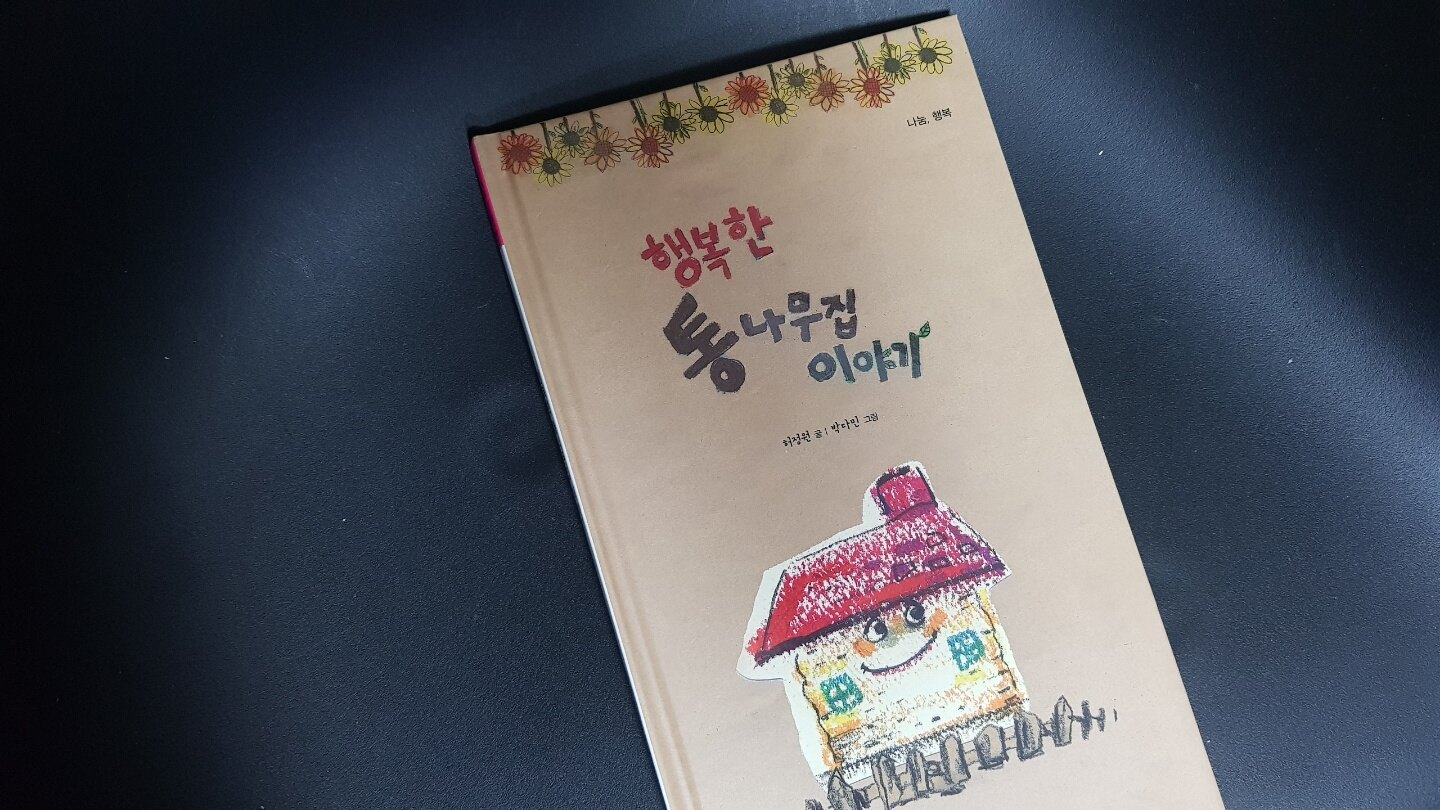 나눔, 행복
행복한
통나무집
이야기
허정원 글 | 박다민 그림